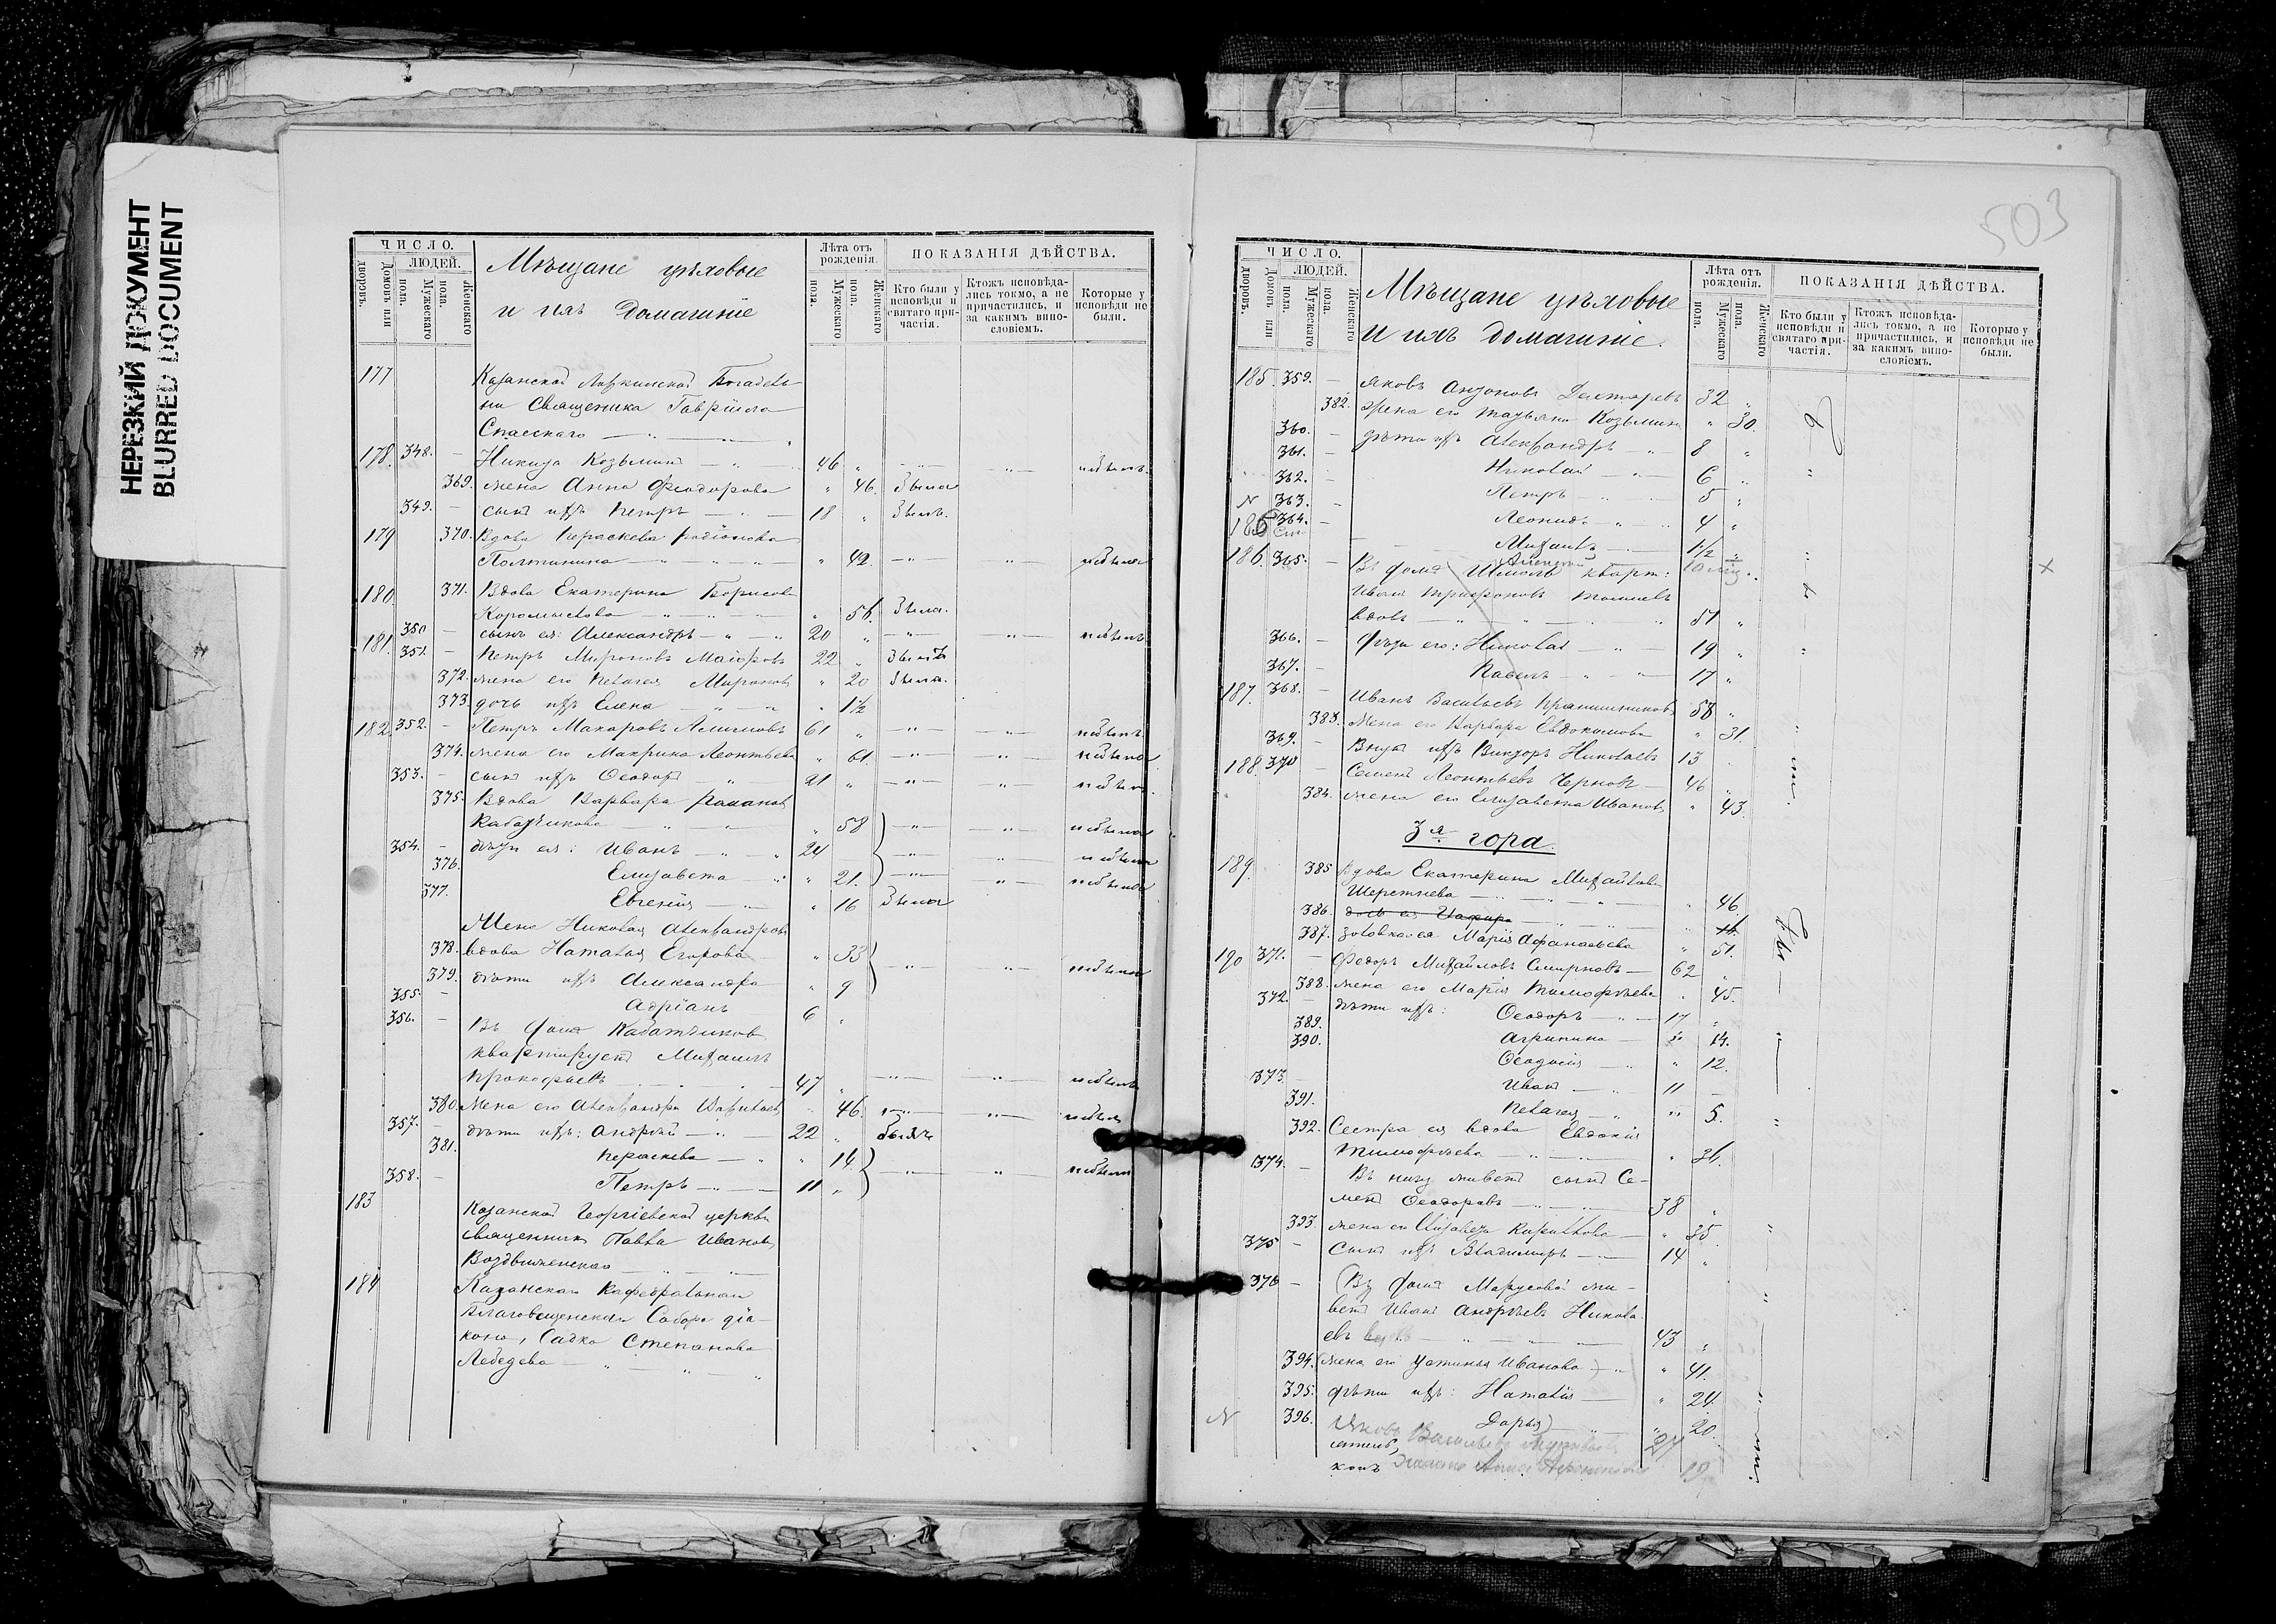 НЕРЕЗКИЙ ДОКУМЕНТ
BLURRED DOCUMENT
ЧИСЛО.
ЛЮДЕЙ.
Дворовъ.
Домовъ или
Мужескаго пола.
Женскаго пола.
Мѣщане цѣховые
и ихъ домашніе
Лѣта отъ рожденія.
Мужескаго пола.
Женскаго пола.
ПОКАЗАНІЯ ДѢЙСТВА.
Кто были у исповѣди и святаго причастія.
Ктожъ исповѣдались токмо, а не причастились, и за какимъ винословіемъ.
Которые у исповѣди не были.
177 Казанской Богадѣль
ни Священика Гавріила
Спасскаго
178. 348. Никита Козьминъ 46 небылъ
369. жена Анна Феодорова 46. была
349. сынъ ихъ Петръ 18 былъ.
179 370. Вдова Параскева Родіонова
42. небыла
180 371. Вдова Екатерина Борисов
Коромыслова 56. была.
350 сынъ ея: Александръ 20 небылъ
181. 351 Петръ Мироновъ Маіоровъ 22 былъ
372. жена его Пелагея Миронов 20 была.
373. дочь ихъ Елена 1½
182 352. Петръ Макаровъ 61 небылъ
374. жена его Макрина Леонтьева 61. небыла
353. сынъ ихъ Ѳеодоръ 21 небылъ.
375. Вдова Варвара Романов
Кабатчикова 58 небыла
354. дѣти ея: Иванъ 24 небылъ
376. Елизавета 21. небыла
377. Евгенія 16 была
Жена Николая Александров
378. вдова Наталья Егорова 33
379. дѣти ихъ Александра 9 небыли
355. Адріанъ 6
356. Въ домѣ Кабатчиков
квартируетъ Михаилъ
Прокофьевъ 47 небылъ
380 жена его Александра 46. небыла
357. дѣти ихъ: Андрей 22 былъ
381. Параскева 14
358. Петръ 11 небыли
183 Казанской Георгіевской церкви
священника Павла Иванов
Воздвиженскаго
184 Казанскаго Кафедральнаго
Благовѣщенскаго Собора діа-
кона, Савва Степанова
Лебедева
503
ЧИСЛО.
ЛЮДЕЙ.
Дворовъ.
Домовъ или
Мужескаго пола.
Женскаго пола.
Мѣщане цѣховые
и ихъ домашніе.
Лѣта отъ рожденія.
Мужескаго пола.
Женскаго пола.
ПОКАЗАНІЯ ДѢЙСТВА.
Кто были у исповѣди и святаго причастія.
Ктожъ исповѣдались токмо, а не причастились, и за какимъ винословіемъ.
Которые у исповѣди не были.
185. 359. Яковъ Антоновъ Дехтаревъ 32
382. жена его Татьяна Козьмина 30.
360. дѣти ихъ Александръ 8
361. Николай 6
362. Петръ 5
N 363. Леонидъ 4
364. Михаилъ 1½
Алексѣй
186. 365. Въ домѣ кварт:
Иванъ Трифоновъ
вдовъ 51
366. дѣти его: Николай 19
367. Павелъ 17
187. 368. Иванъ Васильевъ 58
383. жена его Варвара Евдокимова 31.
369. Внукъ ихъ Викторъ Николаевъ 13
188. 370 Семенъ Леонтьевъ Черновъ 46
384. жена его Елизавета Иванов 43.
3я гора.
189. 385 Вдова Екатерина Михайлова
46.
386. дочь ея 16.
387. золовка ея Марія Афанасьева 51.
190 371. Федоръ Михайловъ Смирновъ 62
388. жена его Марія Тимофѣева 45.
372. дѣти ихъ: Ѳеодоръ 17
389. Агрипина 14.
390. Ѳеодосія 12.
373. Иванъ 11
391. Пелагея 5.
392. Сестра ея вдова Евдокія
Тимофѣева 36.
374. Въ низу живетъ сынъ Се-
менъ Ѳеодоровъ 38
393. жена его Елизавета Кириллова 35.
375 сынъ ихъ Владиміръ 14
376 Въ домѣ Марусовой жи-
ветъ Иванъ Андреевъ Никола
евъ 43
394. жена его Устинья Иванова 41.
395. дѣти ихъ: Наталія 24.
N 396. Дарья 20.
Яковъ Васильевъ 24
Анна 19